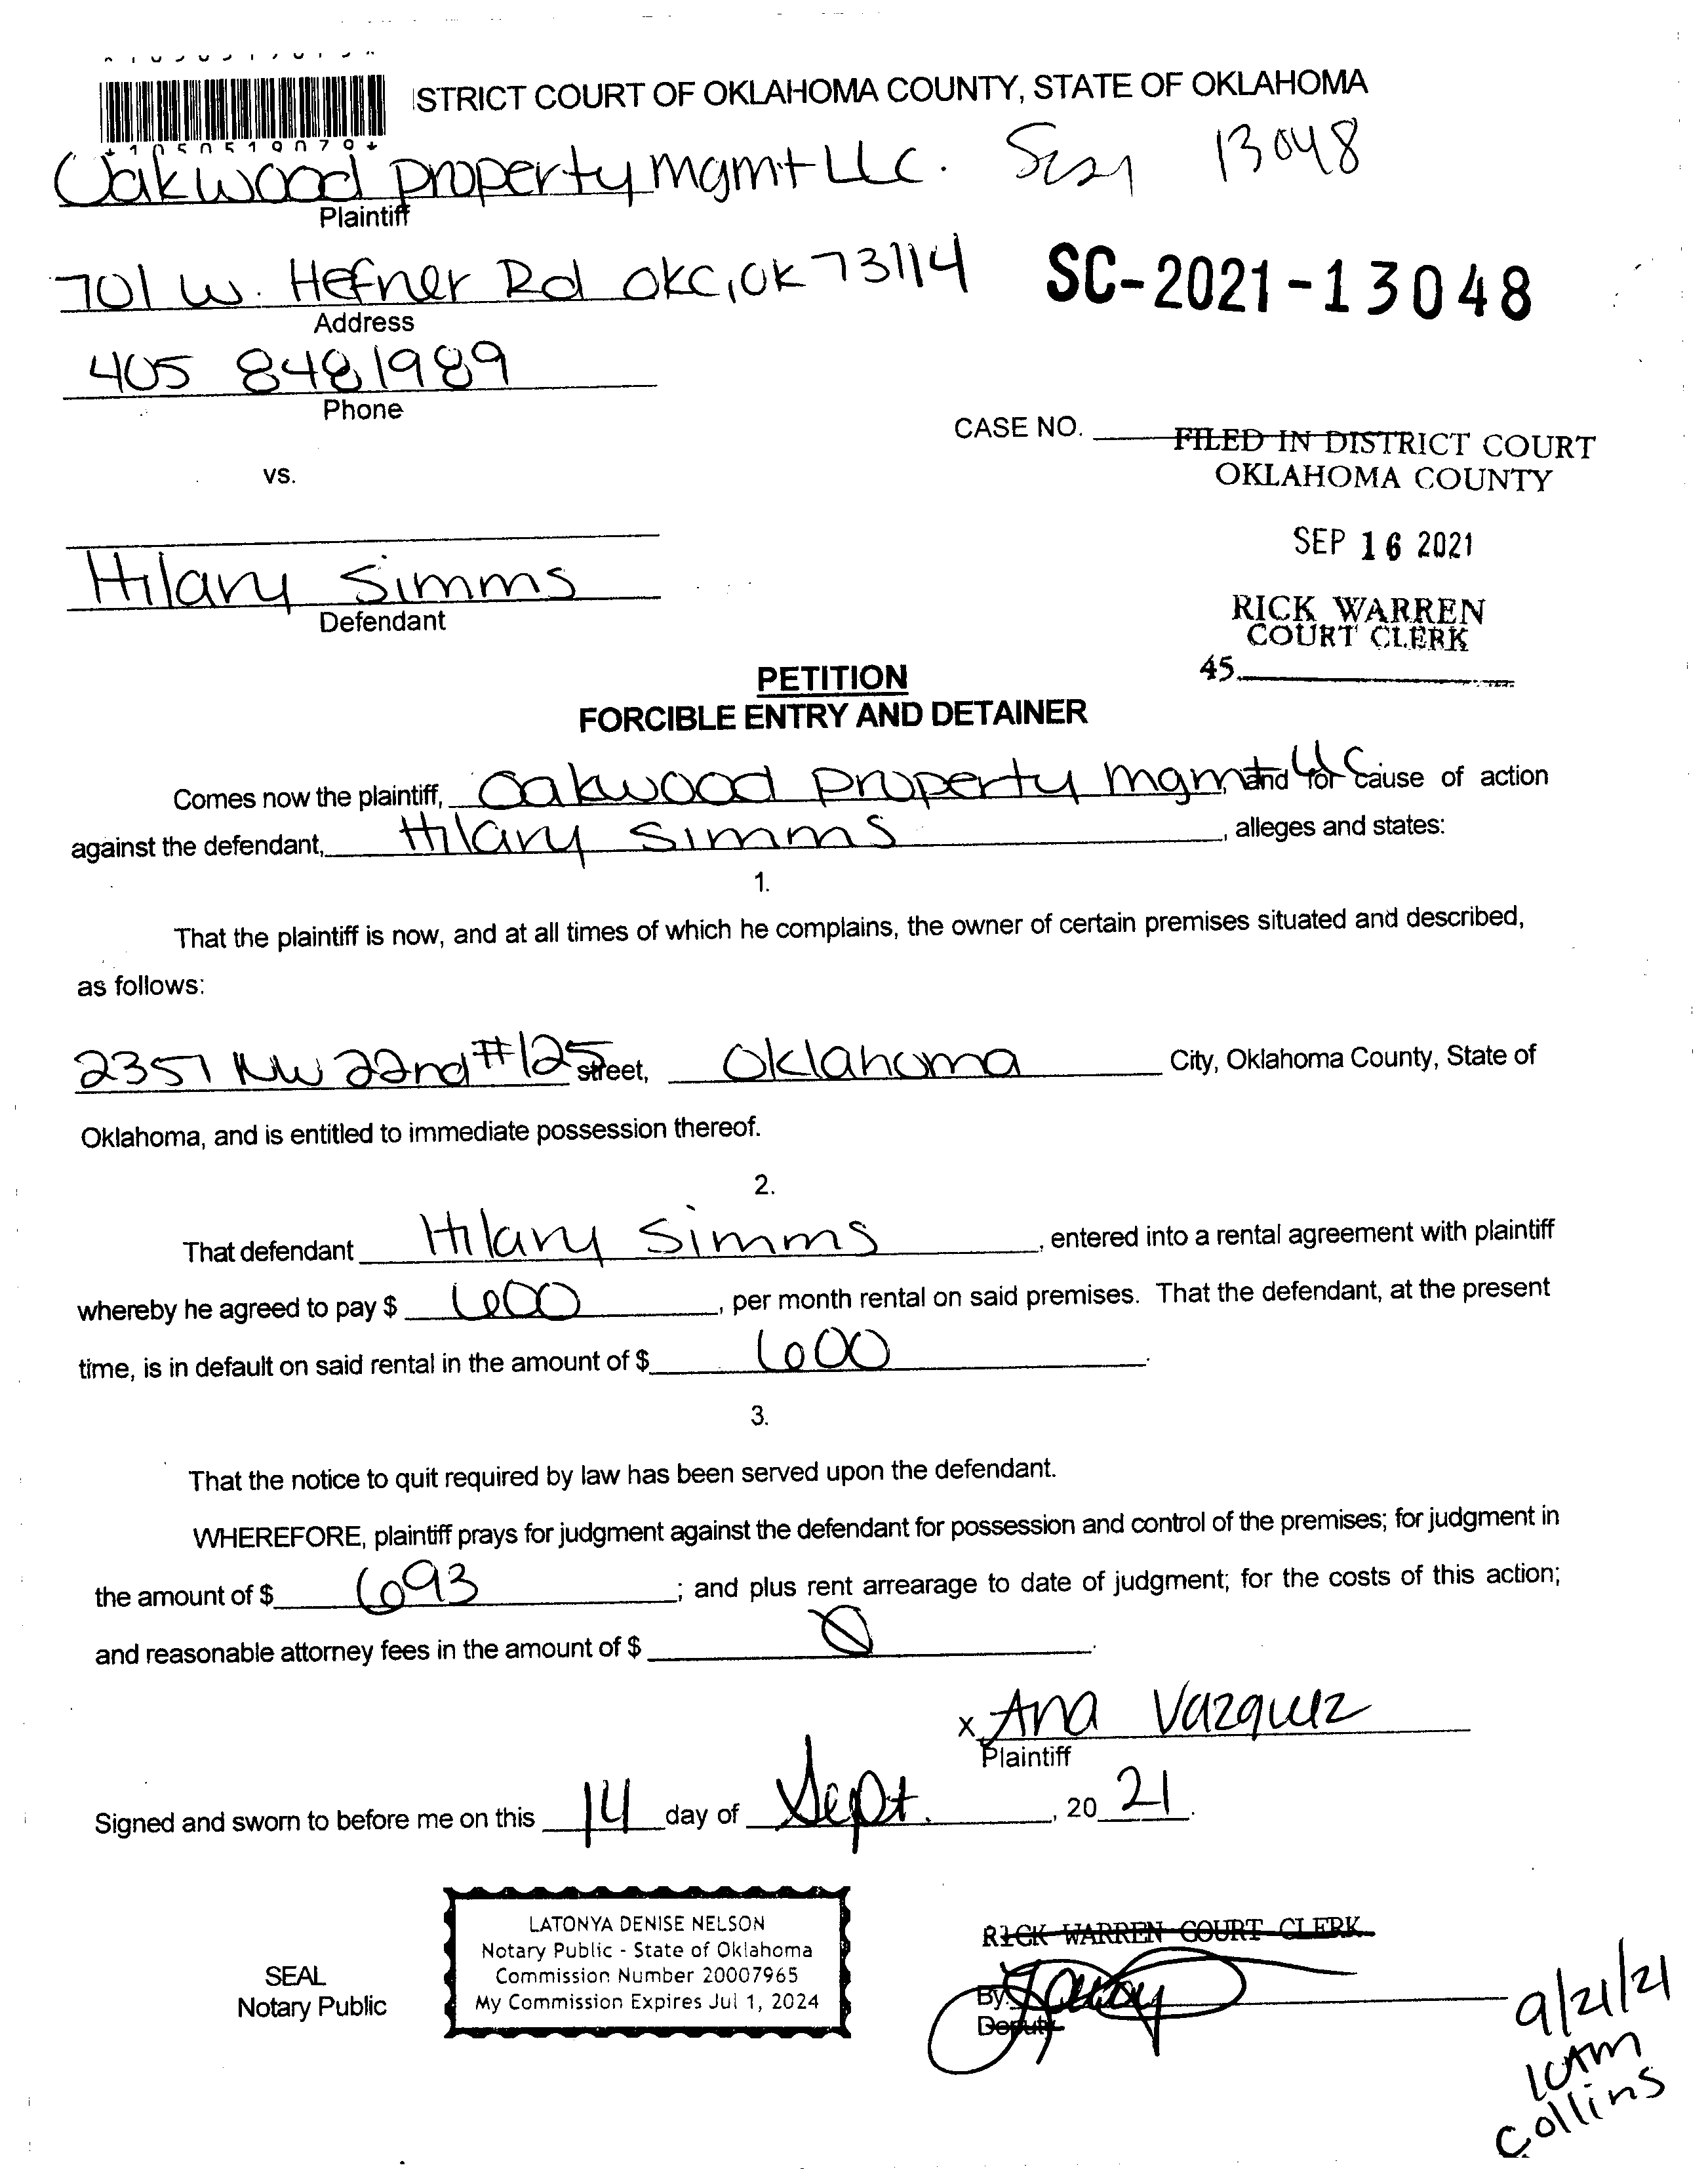 STRICT COURT OF OKLAHOMA COUNTY, STATE OF OKLAHOMA
*1050519079*
Oakwood property mgmt LLC. SC21 13048
Plaintiff
701 W. Hefner Rd OKC, OK 73114 SC-2021-13048
Address
405 848 1989
Phone
CASE NO. FILED IN DISTRICT COURT
OKLAHOMA COUNTY
vs.
SEP 16 2021
Hilary Simms
Defendant
RICK WARREN
COURT CLERK
45
PETITION
FORCIBLE ENTRY AND DETAINER
Comes now the plaintiff, Oakwood property mgmt LLC, and for cause of action
against the defendant, Hilary Simms, alleges and states:
1.
That the plaintiff is now, and at all times of which he complains, the owner of certain premises situated and described,
as follows:
2357 NW 22nd #125 street, Oklahoma City, Oklahoma County, State of
Oklahoma, and is entitled to immediate possession thereof.
2.
That defendant Hilary Simms, entered into a rental agreement with plaintiff
whereby he agreed to pay $ 600, per month rental on said premises. That the defendant, at the present
time, is in default on said rental in the amount of $ 600.
3.
That the notice to quit required by law has been served upon the defendant.
WHEREFORE, plaintiff prays for judgment against the defendant for possession and control of the premises; for judgment in
the amount of $ 693; and plus rent arrearage to date of judgment; for the costs of this action;
and reasonable attorney fees in the amount of $ 0.
x Ana Vazquez
Plaintiff
Signed and sworn to before me on this 14 day of Sept., 20 21.
LATONYA DENISE NELSON
Notary Public - State of Oklahoma
Commission Number 20007965
My Commission Expires Jul 1, 2024
SEAL
Notary Public
RICK WARREN COURT CLERK
By:
Deputy
9/21/21
10AM
Collins